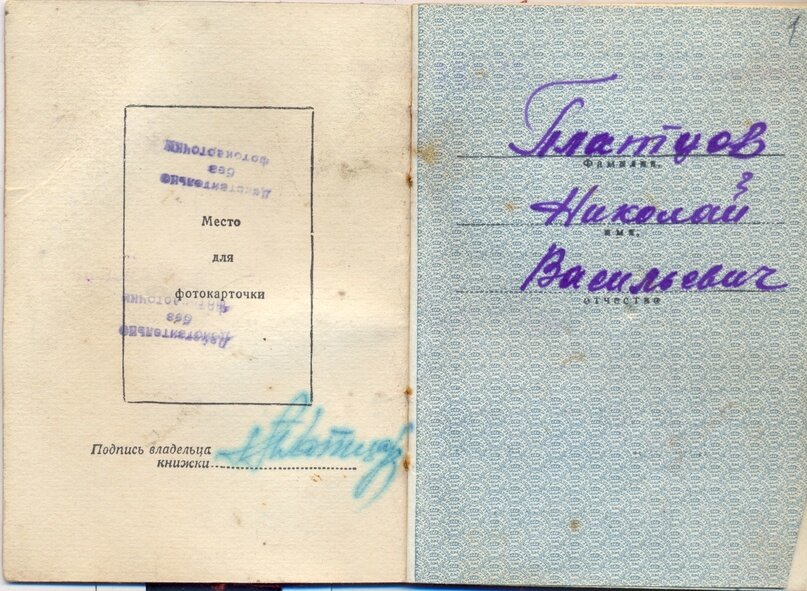 Действительно
без
фотокарточки
Место
для
фотокарточки
Действительно
без
фотокарточки
Подпись владельца
книжки
1
Платцов
Фамилия,
Николай
имя,
Васильевич
отчество